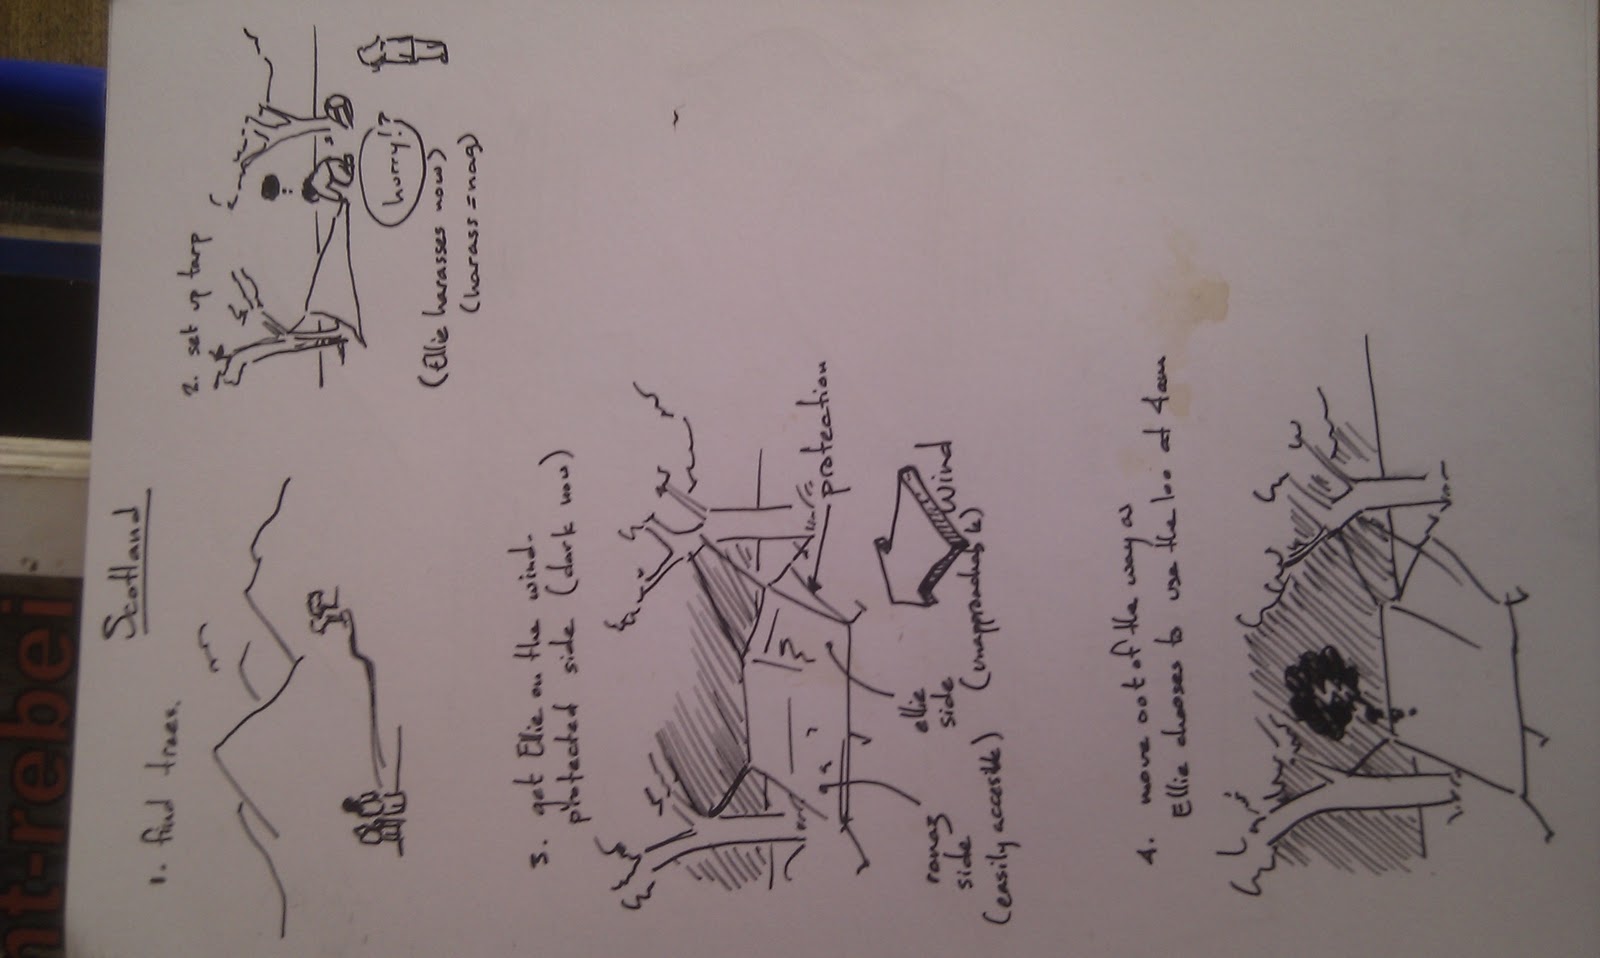 Scotland
1. find trees.
2. set up tarp
hurry!?
(Ellie harasses now)
(harass = nag)
3. get Ellie on the wind-
protected side (dark now)
protection
wind
ellie
side
(unapproachable)
ramaz
side
(easily accessible)
4. move out of the way as
Ellie chooses to use the loo at 4am
nt-rebel